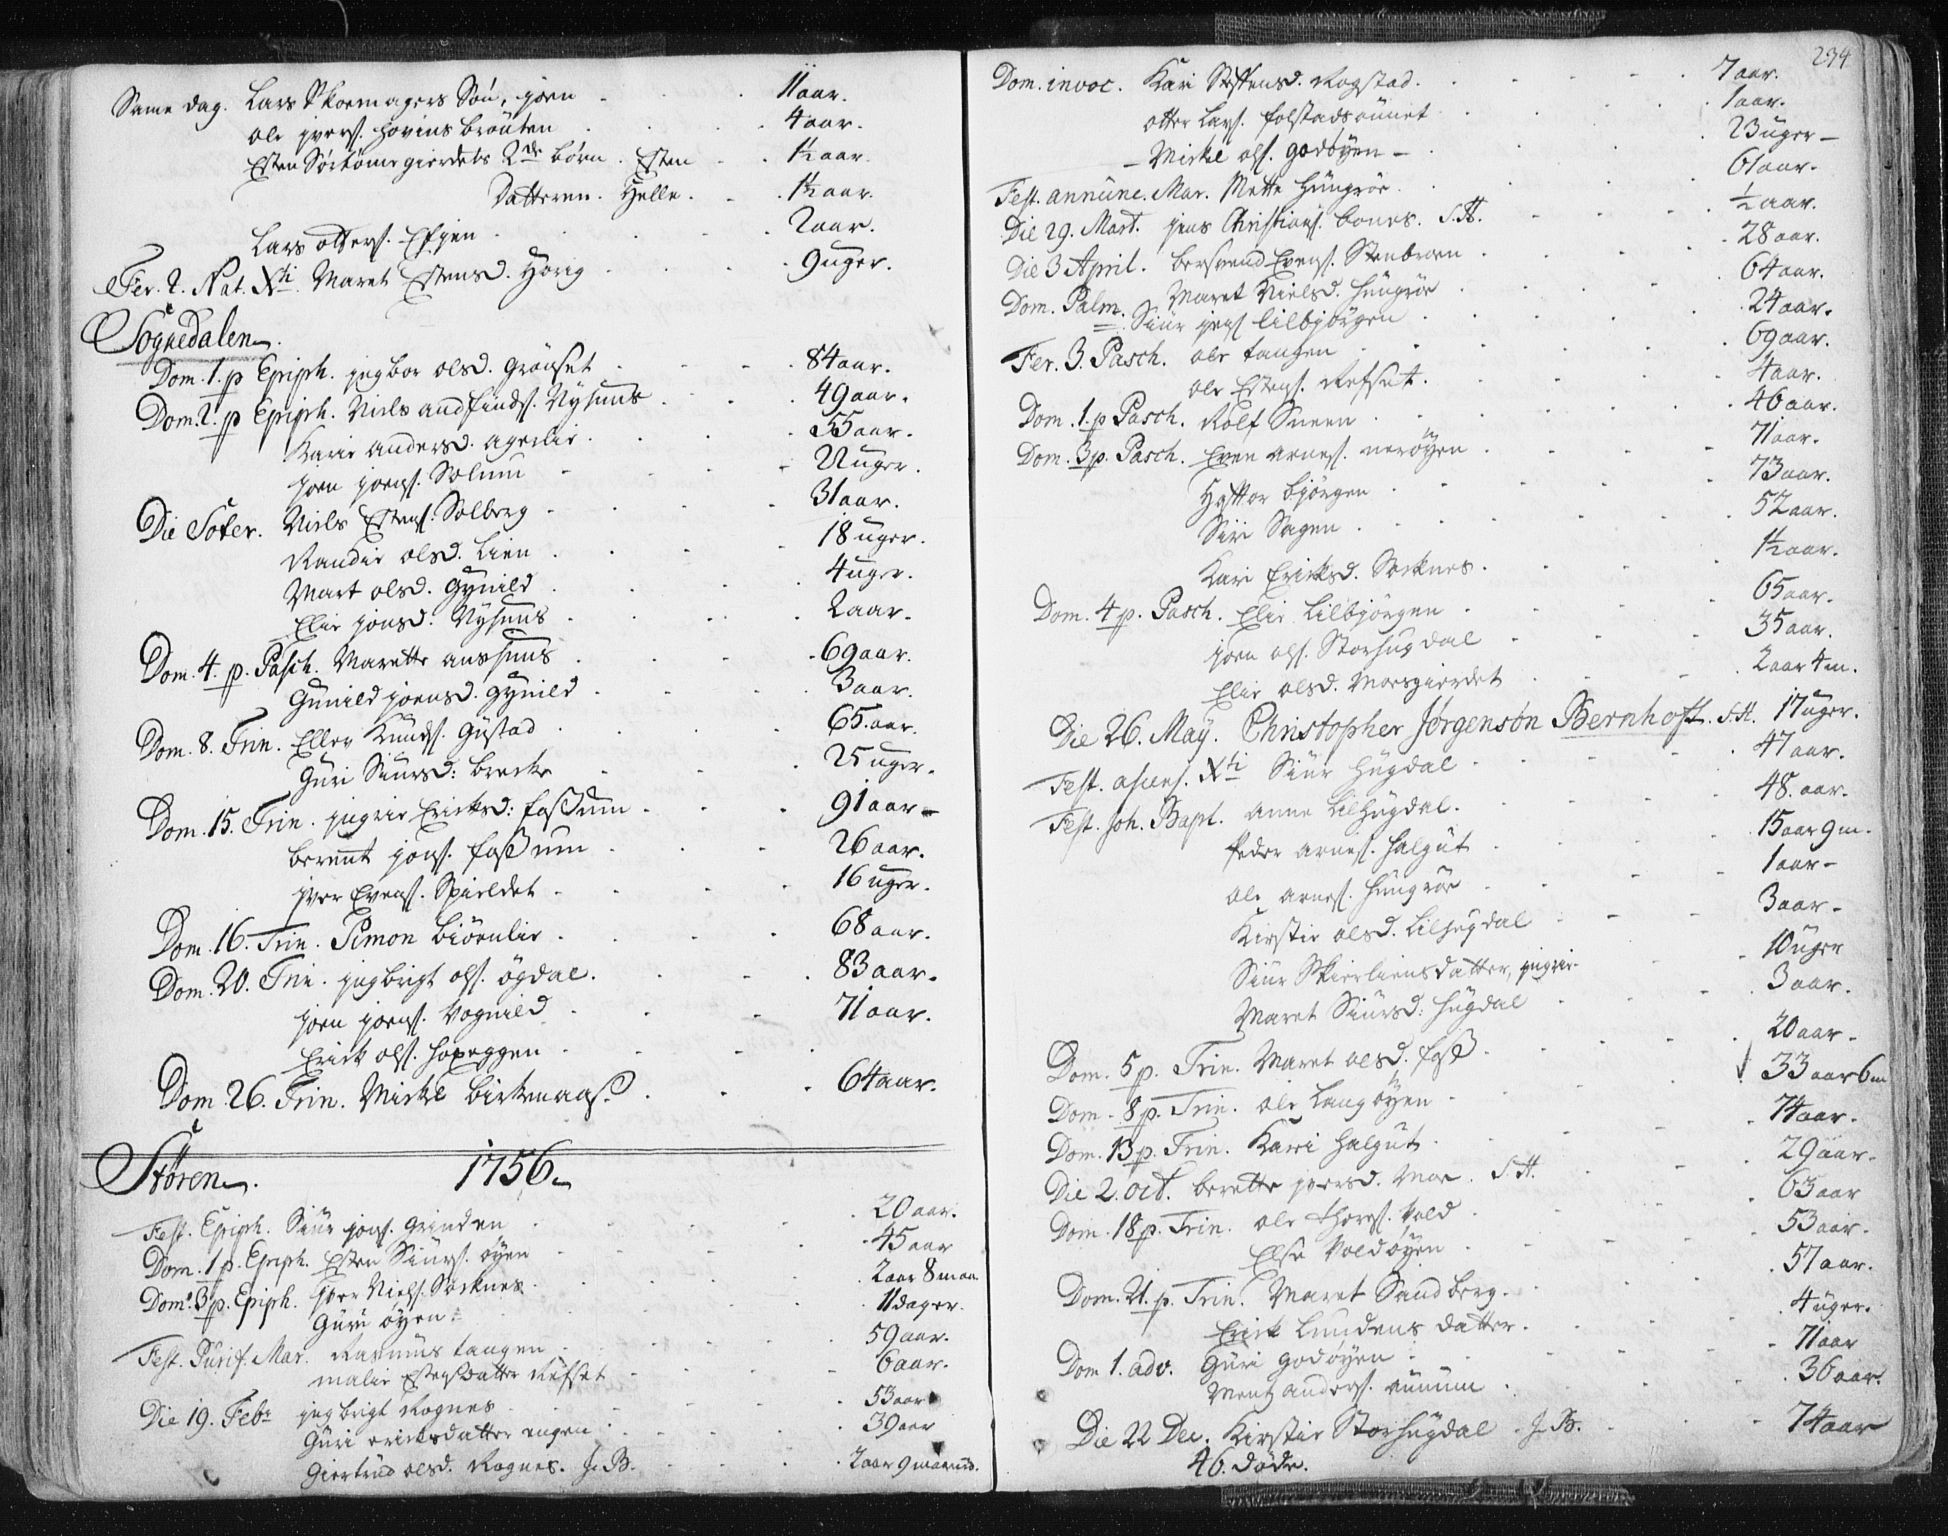 Same dag. Lars Skoemagers Søn, joen 11 aar.
ole ivers. Hovins broüten 4 aar.
Esten Sørtømesgierdets 2de børn. Esten 1½ aar.
Datteren. Helle. 1½ aar.
Lars otters. Espen 2 aar.
Fer. 2. Nat. Xti. Maret Estensd. Horig 9 uger.
Sognedalen.
Dom. 1. p Epiph. ingbor olsd. Grønset 84 aar.
Dom. 2. p Epiph. Niels andfinds. Nyhuus 49 aar.
Karie andersd. agerlie 55 aar.
joen joens. Solum 2 uger.
Die Foter. Niels Estens. Solberg 31 aar.
Randie olsd. Lien 18 uger.
Mart olsd. Gynild 4 uger.
Elie jonsd: Nyhuus 2 aar.
Dom. 4. p. Pasch. Marette aashuus 69 aar.
Gunild joensd. gynild 3 aar.
Dom. 8. Trin. Ellev Knuds. Gystad 65. aar.
Guri Siursd: brecke 25 uger.
Dom. 15. Trin. ingrie Ericksd: fossum 91 aar
berent jons. fossum 26 aar.
iver Evens. Spieldet 16 uger.
Dom. 16. Trin. Simon biörnlie 68 aar.
Dom. 20. Trin. ingbrigt ols. ögdal. 83 aar.
joen joens. Vognild 71 aar.
Erick ols. hopeggen
Dom. 26. Trin. Mickel birkenaas. 64 aar.
Støren. 1756
Fest. Epiph. Siur jons. Grinden 20 aar.
Dom. 1 p. Epiph. Esten Siurs. öyen 45 aar
Dom. 3 p. Epiph. iver Niels. Soknes 2 aar 8 maan.
Guri öyen 11 dager.
Fest. Purif. Mar. Rasmus tangen 59 aar.
malie Estensdatter Refset 6 aar.
Die 19. Febr ingbrigt Rognes 53 aar
Guri ericksdatter engen 39 aar
Giertrud olsd. Rognes. J. B. 2 aar 9 maaned.
234
Dom. invoc. Kari Steffensd. Rogstad. 7 aar.
otter Lars. folstadsaunet 1 aar.
Mickel ols. godöyen 23 uger
Fest. annunc. Mar. Mette Hüngröe 61 aar.
Die 29. Mart. jens Christians. bones. S. H. ½ aar.
Die 3 April. bersvend Evens. Stenbroen 28 aar.
Dom. Palm. Maret Nielsd. hüngröe 64 aar.
Siur jens. lilbjörgen 24 aar.
Fer. 3. Pasch. ole tangen 69 aar.
ole Estens. Refset. 4 aar.
Dom. 1. p Pasch. Rolf Sneen 46 aar.
Dom. 3 p. Pasch. Even arnes. neröyen 71 aar.
björgen 73 aar.
Siri Sagen 52 aar.
Kari Ericksd. Soknes. 1½ aar.
Dom. 4 p. Pasch. Elie Lilbjörgen 65 aar.
joen ols. Storhugdal 35 aar.
Elie olsd. Moesgierdet 2 aar 4 m.
Die 26. May. Christopher Jørgensøn Bernhoft. S. H. 17 uger.
Fest. ascens. Xti Siur hugdal 47 aar.
Fest. Joh. Bapt. anne lilhugdal. 48. aar.
Peder arnes. halgut 15 aar 9 m.
ole arnes. hungröe 1 aar
Kirstie olsd. Lilhugdal 3 aar
Siur Skierliens datter, ingrie 10 uger
Maret Siursd: hugdal 3 aar.
Dom. 5 p. Trin. Maret olsd. foss 20 aar
Dom. 8 p. Trin. ole Langöyen 33 aar 6 m
Dom. 13 p. Trin. Karri halgut 74 aar.
Die 2. oct. berette iversd. Moe. S. H. 29 aar.
Dom. 18 p. Trin. ole thors. Vold 63 aar
Else Voldöyen 53 aar.
Dom. 21. p. Trin. Maret Sandberg. 57 aar.
Erick Lundens datter. 4 uger.
Dom 1. adv. Guri godöyen 71 aar
Ment anders. aunum 36 aar.
Die 22 Dec. Kirstie Storhugdal. J. B. 74 aar
46. döde.